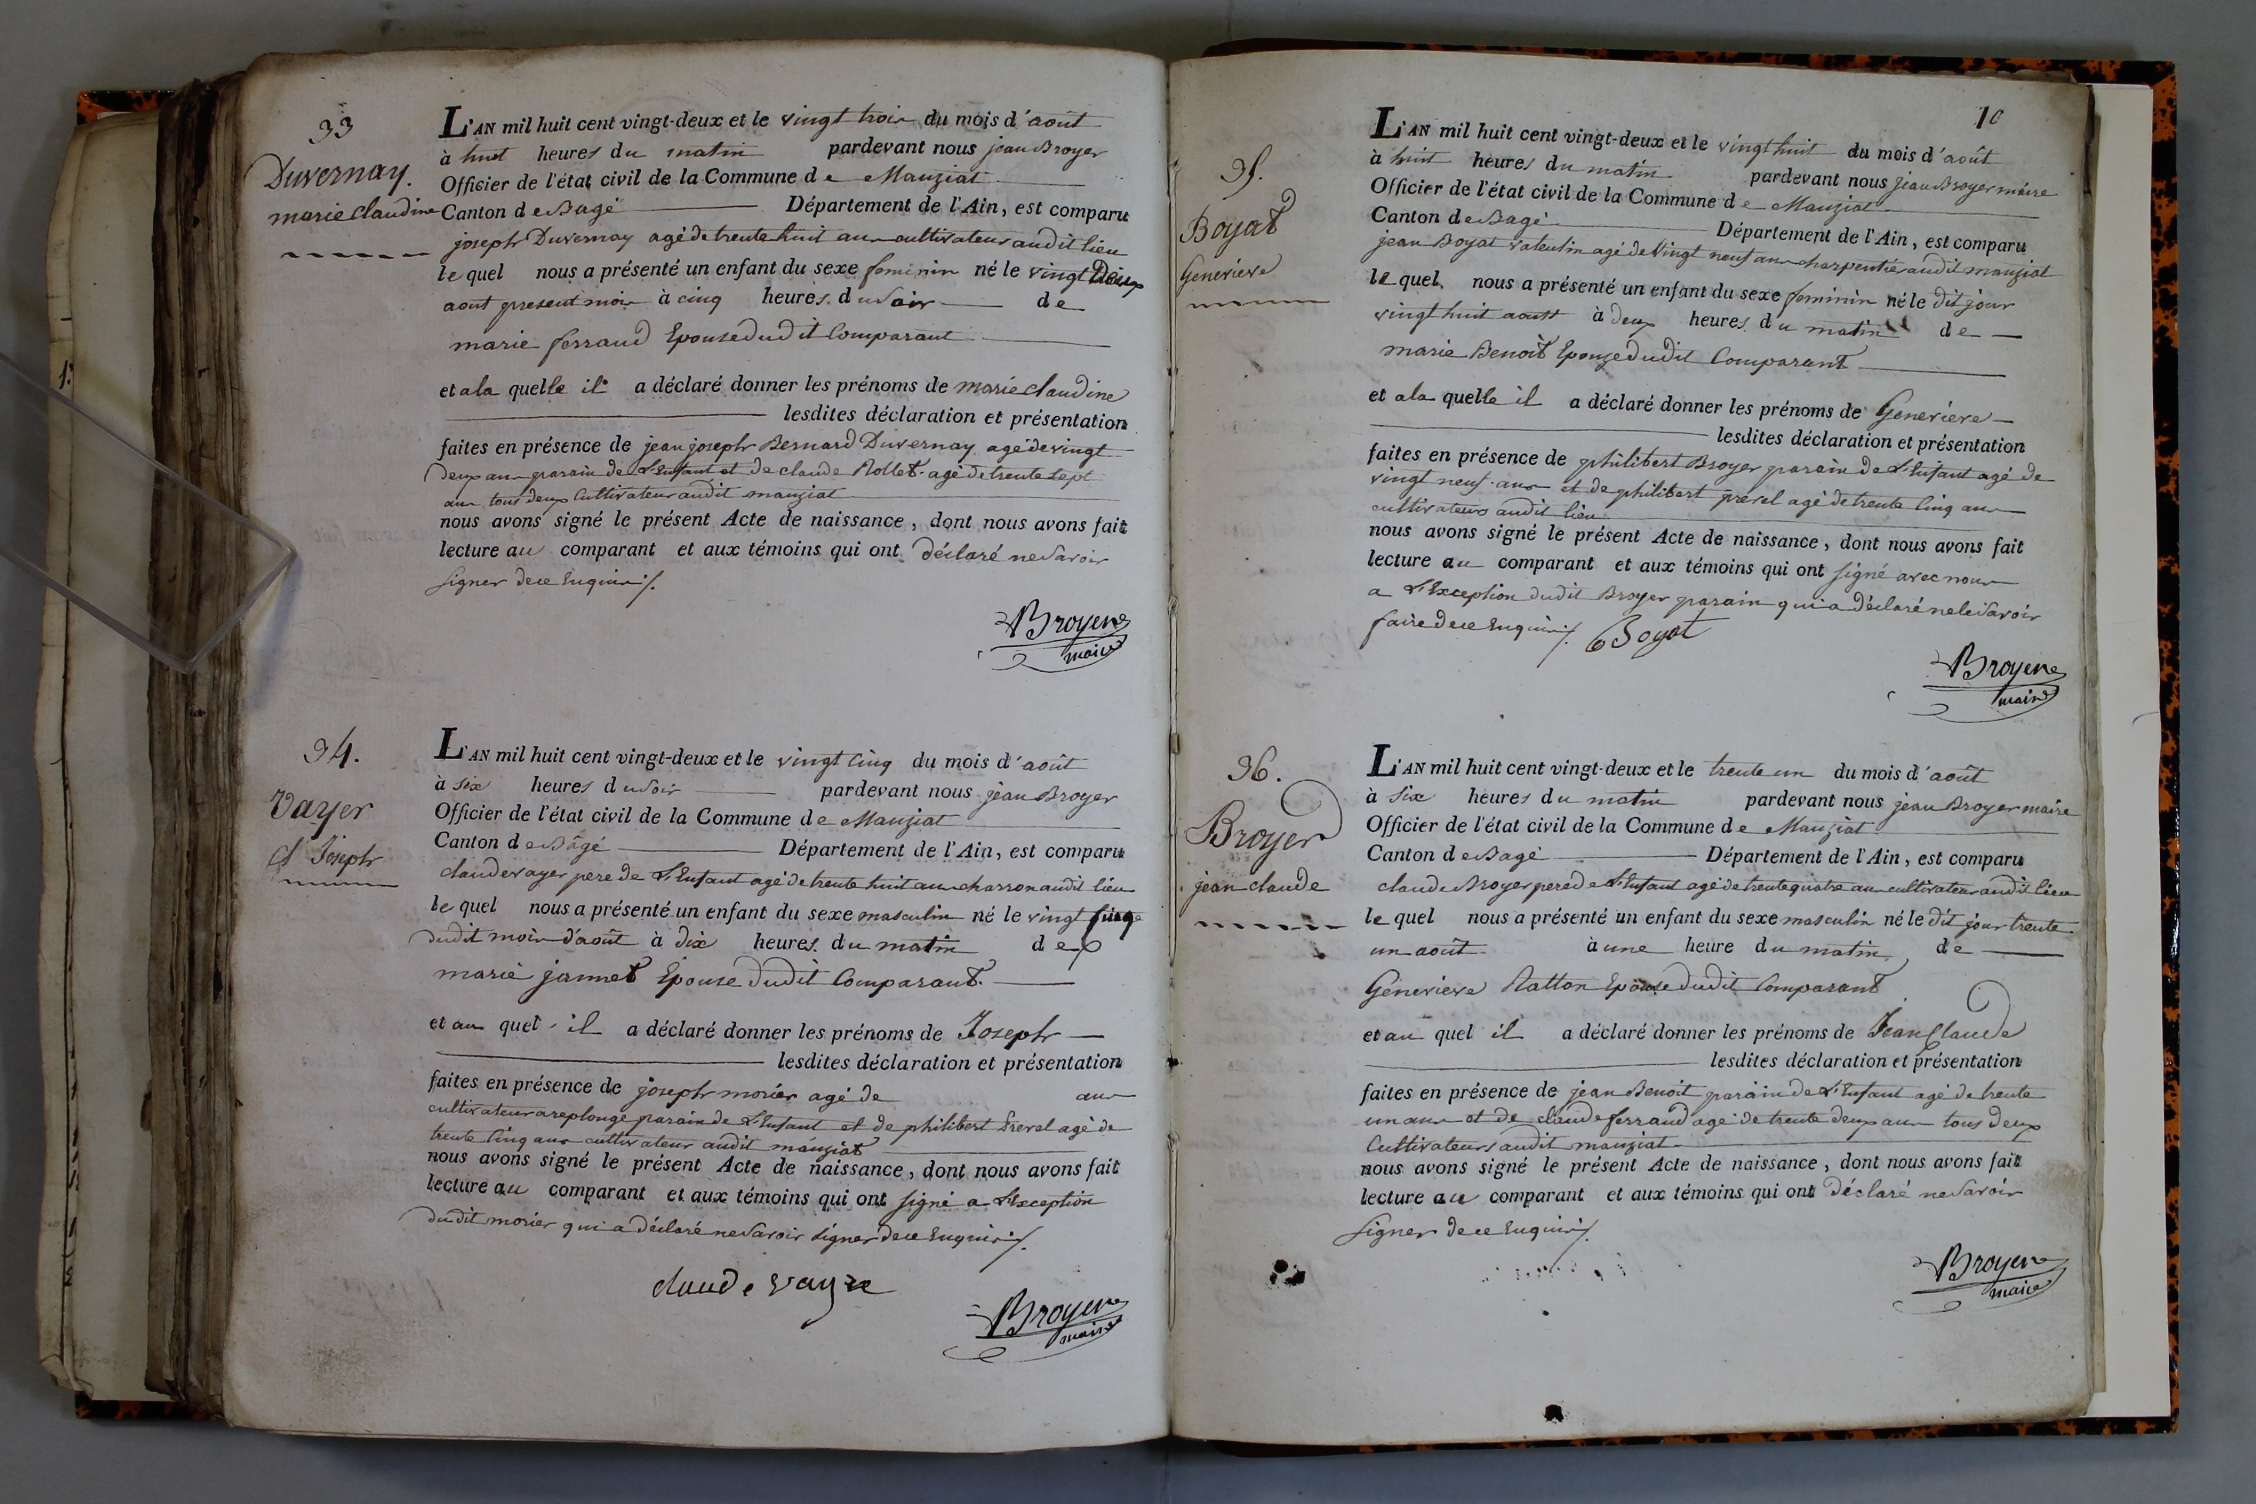 33
Duvernay.
marie claudine
L'AN mil huit cent vingt-deux et le vingt trois du mois d'août
à huit heures du matin pardevant nous jean Broyer
Officier de l'état civil de la Commune de Manziat
Canton de Bagé Département de l'Ain, est comparu
joseph Duvernay agé de trente huit ans cultivateur audit lieu
le quel nous a présenté un enfant du sexe feminin né le vingt Deux
aout present mois à cinq heures du soir de
marie ferraud Epouse dudit Comparant
et a la quelle il a déclaré donner les prénoms de marie claudine
lesdites déclaration et présentation
faites en présence de jean joseph Bernard Duvernay agé de vingt
Deux ans parain de L'Enfant et de claude Rollet agé de trente sept
ans tous deux Cultivateur audit manziat
nous avons signé le présent Acte de naissance, dont nous avons fait
lecture au comparant et aux témoins qui ont déclaré ne savoir
signer de ce Enquis ./.
Broyer
maire
34.
Vayer
Joseph
L'AN mil huit cent vingt-deux et le vingt Cinq du mois d'août
à six heures du soir pardevant nous jean Broyer
Officier de l'état civil de la Commune de Manziat
Canton de Bâgé Département de l'Ain, est comparu
claude vayer pere de L'Enfant agé de trente huit ans charron audit lieu
le quel nous a présenté un enfant du sexe masculin né le vingt Cinq
dudit mois d'août à dix heures du matin de
marie jannet Epouse dudit Comparant.
et au quel il a déclaré donner les prénoms de Joseph
lesdites déclaration et présentation
faites en présence de joseph morier agé de ans
cultivateur a replonge parain de L'Enfant et de philibert Prevel agé de
trente Cinq ans cultivateur audit manziat
nous avons signé le présent Acte de naissance, dont nous avons fait
lecture au comparant et aux témoins qui ont signé a L'Exception
dudit morier qui a déclaré ne savoir signer de ce Enquis ./.
claude vayre
Broyer
maire
10
35.
Boyat
Genevieve
L'AN mil huit cent vingt-deux et le vingt huit du mois d'août
à huit heures du matin pardevant nous jean Broyer maire
Officier de l'état civil de la Commune de Manziat
Canton de Bagé Département de l'Ain, est comparu
jean Boyat vatentin agé de vingt neuf ans charpentier audit manziat
le quel nous a présenté un enfant du sexe feminin né le dit jour
vingt huit aoust à deux heures du matin de
marie Benoit Epouse dudit Comparant
et a la quelle il a déclaré donner les prénoms de Genevieve
lesdites déclaration et présentation
faites en présence de philibert Broyer parain de L'Enfant agé de
vingt neuf ans et de philibert prevel agé de trente Cinq ans
cultivateurs audit lieu
nous avons signé le présent Acte de naissance, dont nous avons fait
lecture au comparant et aux témoins qui ont signé avec nous
a L'Exception dudit Broyer parain qui a déclaré ne le savoir
faire de ce Enquis ./. Boyat
Broyer
maire
36.
Broyer
jean claude
L'AN mil huit cent vingt-deux et le trente un du mois d'août
à six heures du matin pardevant nous jean Broyer maire
Officier de l'état civil de la Commune de Manziat
Canton de Bagé Département de l'Ain, est comparu
claude Broyer pere de L'Enfant agé de trente quatre ans cultivateur audit lieu
le quel nous a présenté un enfant du sexe masculin né le dit jour trente
un août à une heure du matin de
Genevieve Natton Epouse dudit Comparant
et au quel il a déclaré donner les prénoms de Jean Claude
lesdites déclaration et présentation
faites en présence de jean Benoit parain de L'Enfant agé de trente
un ans et de claude ferraud agé de trente deux ans tous deux
Cultivateurs audit manziat
nous avons signé le présent Acte de naissance, dont nous avons fait
lecture au comparant et aux témoins qui ont déclaré ne savoir
signer de ce Enquis ./.
Broyer
maire